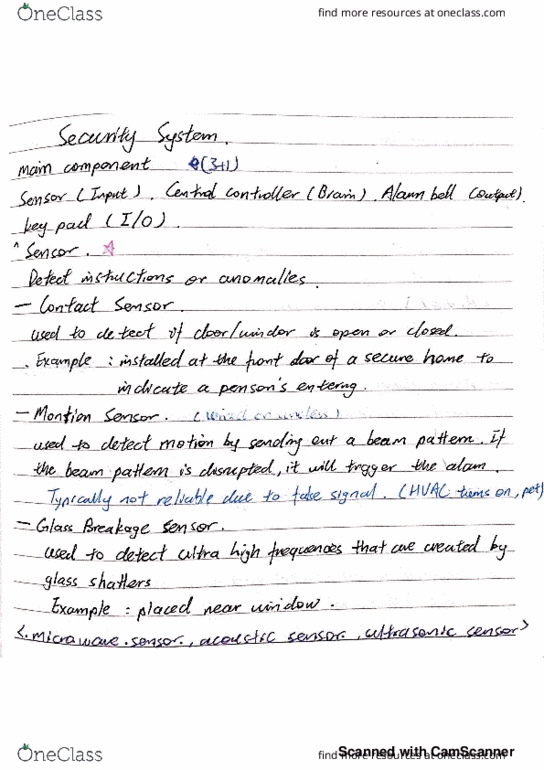 OneClass
find more resources at oneclass.com
Security System.
main component (3+1)
Sensor (Input), Central controller (Brain), Alarm bell (output).
key pad (I/O).
^ Sensor. ☆
Detect instructions or anomalies.
— Contact Sensor.
used to detect if door/window is open or closed.
. Example : installed at the front door of a secure home to
indicate a person's entering.
— Montion Sensor. (wired or wireless)
used to detect motion by sending out a beam pattern. if
the beam pattern is disrupted, it will trigger the alarm.
Typically not reliable due to false signal. (HVAC turns on, pet)
— Glass Breakage sensor.
used to detect ultra high frequences that are created by
glass shatters
Example : placed near window.
<. microwave sensor, acoustic sensor, ultrasonic sensor>
OneClass
find more resources at oneclass.com
Scanned with CamScanner